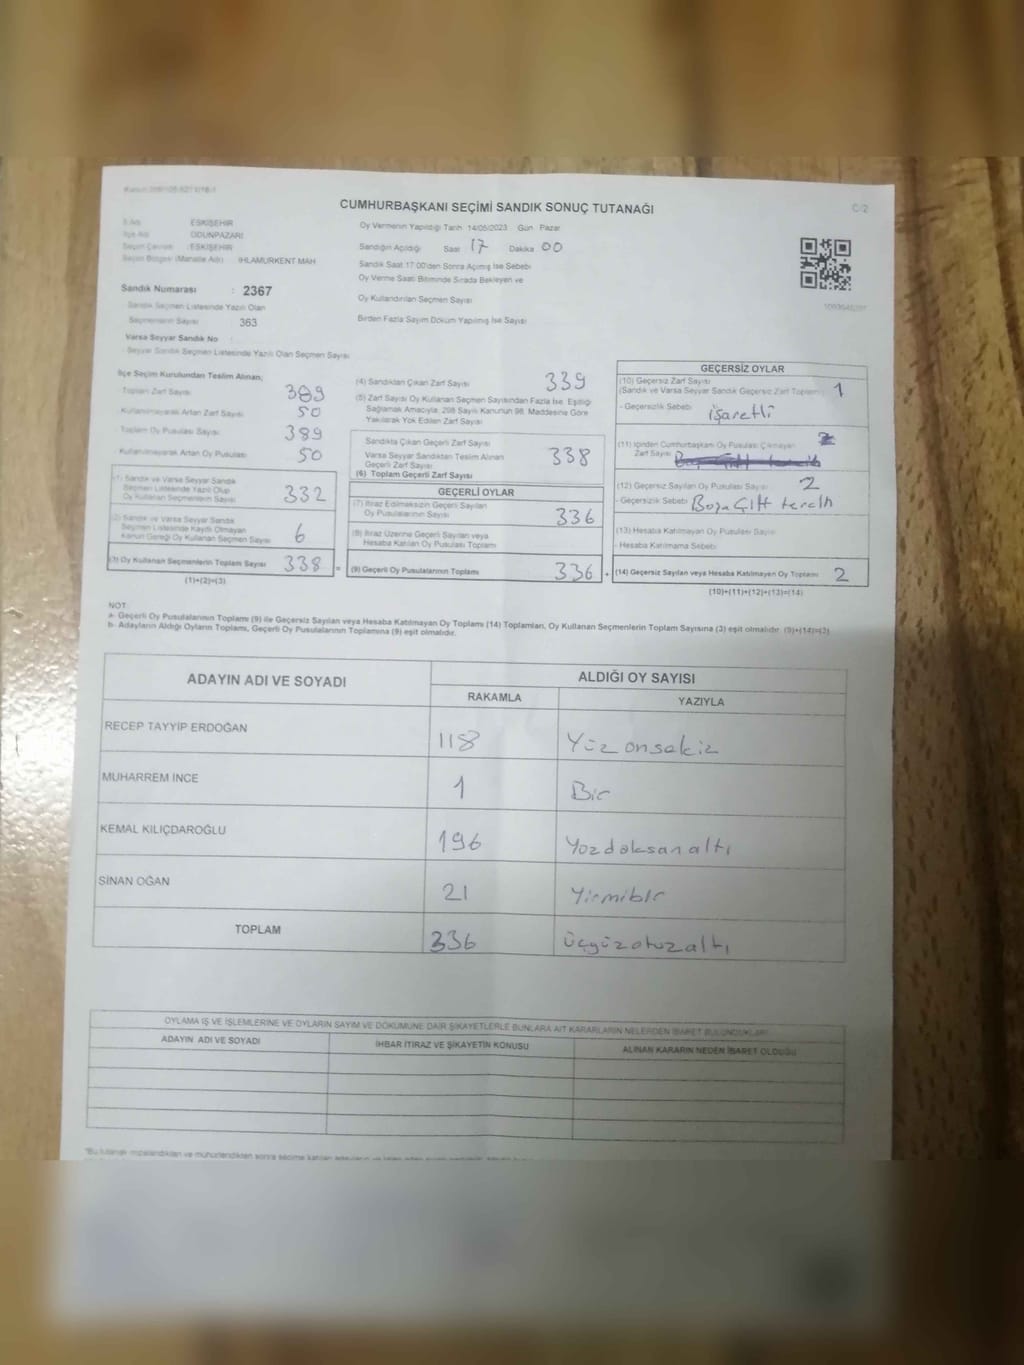 CUMHURBAŞKANI SEÇİMİ SANDIK SONUÇ TUTANAĞI
C-2
İl Adı ESKİŞEHİR
İlçe Adı ODUNPAZARI
Seçim Çevresi :ESKİŞEHİR
Seçim Bölgesi (Mahalle Adı) IHLAMURKENT MAH
Sandık Numarası : 2367
Sandık Seçmen Listesinde Yazılı Olan
Seçmenlerin Sayısı 363
Varsa Seyyar Sandık No
Seyyar Sandık Seçmen Listesinde Yazılı Olan Seçmen Sayısı
Oy Vermenin Yapıldığı Tarih 14/05/2023 Gün Pazar
Sandığın Açıldığı Saat 17 Dakika 00
Sandık Saat 17:00'den Sonra Açılmış İse Sebebi
Oy Verme Saati Bitiminde Sırada Bekleyen ve
Oy Kullandırılan Seçmen Sayısı
Birden Fazla Sayım Döküm Yapılmış İse Sayısı
İlçe Seçim Kurulundan Teslim Alınan;
Toplam Zarf Sayısı 389
Kullanılmayarak Artan Zarf Sayısı 50
Toplam Oy Pusulası Sayısı 389
Kullanılmayarak Artan Oy Pusulası 50
(1) Sandık ve Varsa Seyyar Sandık
Seçmen Listesinde Yazılı Olup
Oy Kullanan Seçmenlerin Sayısı 332
(2) Sandık ve Varsa Seyyar Sandık
Seçmen Listesinde Kayıtlı Olmayan
Kanun Gereği Oy Kullanan Seçmen Sayısı 6
(3) Oy Kullanan Seçmenlerin Toplam Sayısı 338 =
(1)+(2)=(3)
(4) Sandıktan Çıkan Zarf Sayısı 339
(5) Zarf Sayısı Oy Kullanan Seçmen Sayısından Fazla İse, Eşitliği
Sağlamak Amacıyla, 298 Sayılı Kanunun 98. Maddesine Göre
Yakılarak Yok Edilen Zarf Sayısı
Sandıkta Çıkan Geçerli Zarf Sayısı
Varsa Seyyar Sandıktan Teslim Alınan
Geçerli Zarf Sayısı
(6) Toplam Geçerli Zarf Sayısı 338
GEÇERLİ OYLAR
(7) İtiraz Edilmeksizin Geçerli Sayılan
Oy Pusulalarının Sayısı 336
(8) İtiraz Üzerine Geçerli Sayılan veya
Hesaba Katılan Oy Pusulası Toplamı
(9) Geçerli Oy Pusulalarının Toplamı 336 +
GEÇERSİZ OYLAR
(10) Geçersiz Zarf Sayısı
(Sandık ve Varsa Seyyar Sandık Geçersiz Zarf Toplamı) 1
- Geçersizlik Sebebi işaretli
(11) İçinden Cumhurbaşkanı Oy Pusulası Çıkmayan
Zarf Sayısı
(12) Geçersiz Sayılan Oy Pusulası Sayısı 2
- Geçersizlik Sebebi Boşa Çift tercih
(13) Hesaba Katılmayan Oy Pusulası Sayısı
- Hesaba Katılmama Sebebi
(14) Geçersiz Sayılan veya Hesaba Katılmayan Oy Toplamı 2
(10)+(11)+(12)+(13)=(14)
NOT:
a- Geçerli Oy Pusulalarının Toplamı (9) ile Geçersiz Sayılan veya Hesaba Katılmayan Oy Toplamı (14) Toplamları, Oy Kullanan Seçmenlerin Toplam Sayısına (3) eşit olmalıdır. (9)+(14)=(3)
b- Adayların Aldığı Oyların Toplamı, Geçerli Oy Pusulalarının Toplamına (9) eşit olmalıdır.
ADAYIN ADI VE SOYADI ALDIĞI OY SAYISI
RAKAMLA YAZIYLA
RECEP TAYYİP ERDOĞAN 118 Yüz onsekiz
MUHARREM İNCE 1 Bir
KEMAL KILIÇDAROĞLU 196 Yüzdoksanaltı
SİNAN OĞAN 21 Yirmibir
TOPLAM 336 üçyüzotuzaltı
OYLAMA İŞ VE İŞLEMLERİNE VE OYLARIN SAYIM VE DÖKÜMÜNE DAİR ŞİKAYETLERLE BUNLARA AİT KARARLARIN NELERDEN İBARET BULUNDUKLARI
ADAYIN ADI VE SOYADI İHBAR İTİRAZ VE ŞİKAYETİN KONUSU ALINAN KARARIN NEDEN İBARET OLDUĞU